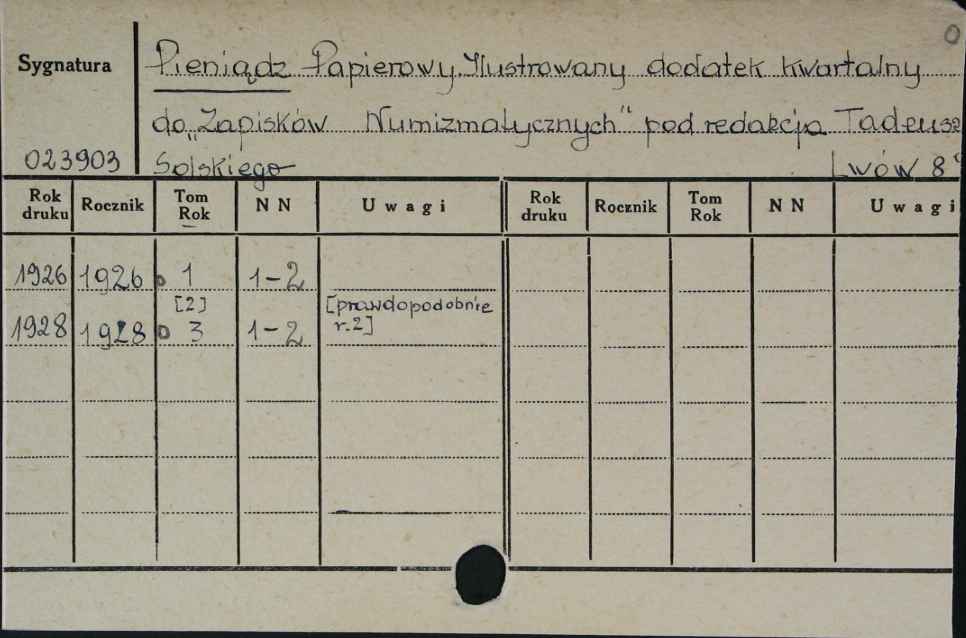 0
Sygnatura Pieniądz Papierowy. Ilustrowany dodatek kwartalny
do „Zapisków Numizmatycznych" pod redakcją Tadeusza
023903 Solskiego Lwów 8°
Rok druku Rocznik Tom Rok N N Uwagi Rok druku Rocznik Tom Rok N N Uwagi
1926 1926 1 1-2
[2] [prawdopodobnie
1928 1928 3 1-2 r.2]